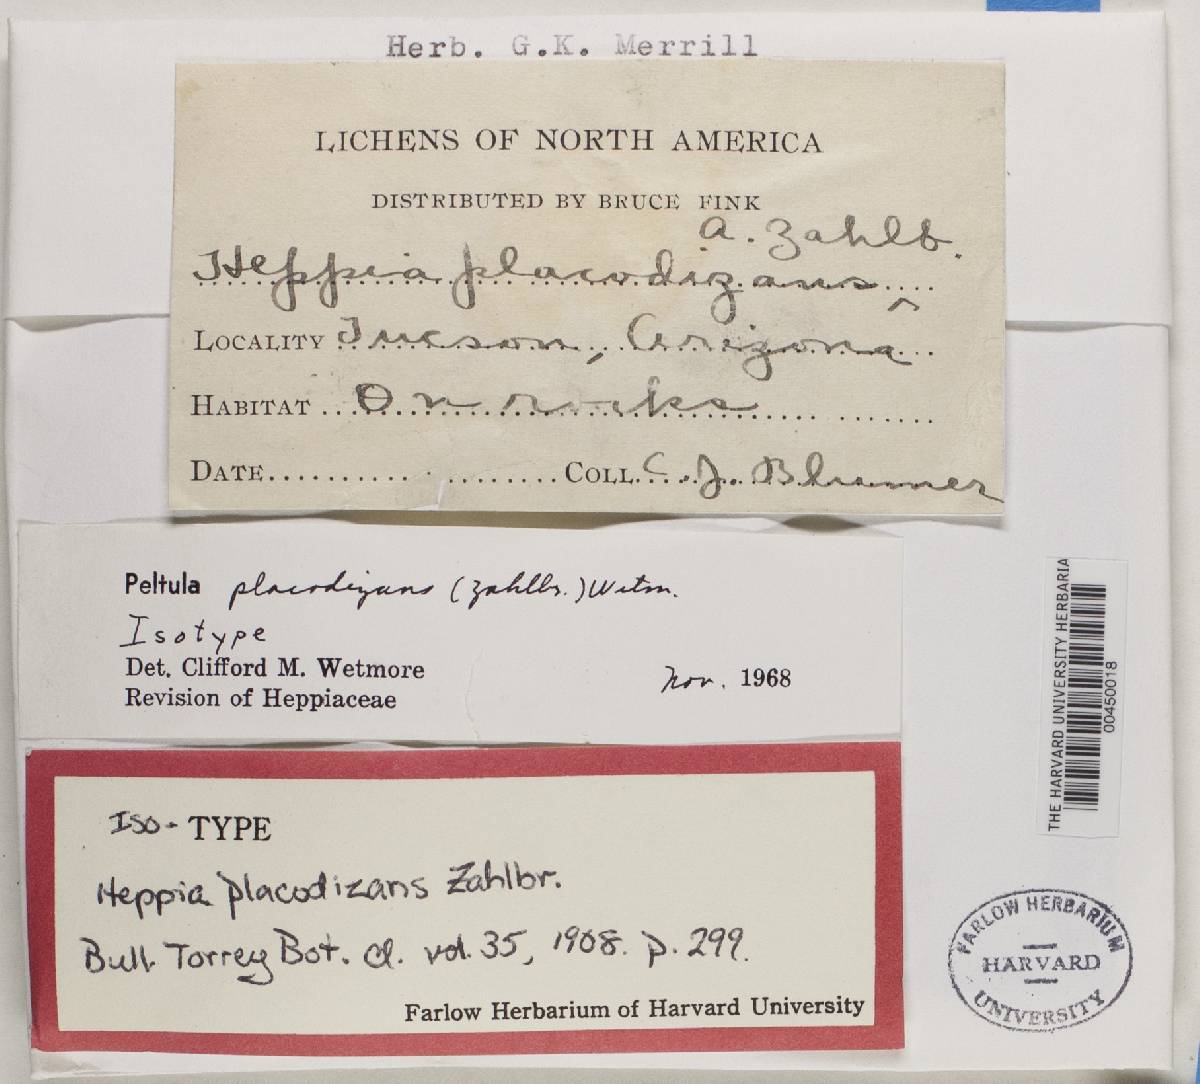 Herb. G.K. Merrill
LICHENS OF NORTH AMERICA
DISTRIBUTED BY BRUCE FINK
A. Zahlb.
Heppia placodizans ‸
LOCALITY Tucson, Arizona
HABITAT On rocks
DATE COLL. C. J. Blumer
Peltula placodizans (Zahlbr.) Wetm.
Isotype
Det. Clifford M. Wetmore Nov. 1968
Revision of Heppiaceae
THE HARVARD UNIVERSITY HERBARIA
00450018
Iso- TYPE
Heppia placodizans Zahlbr.
Bull. Torrey Bot. Cl. vol. 35, 1908. p. 299.
Farlow Herbarium of Harvard University
FARLOW HERBARIUM
HARVARD
UNIVERSITY